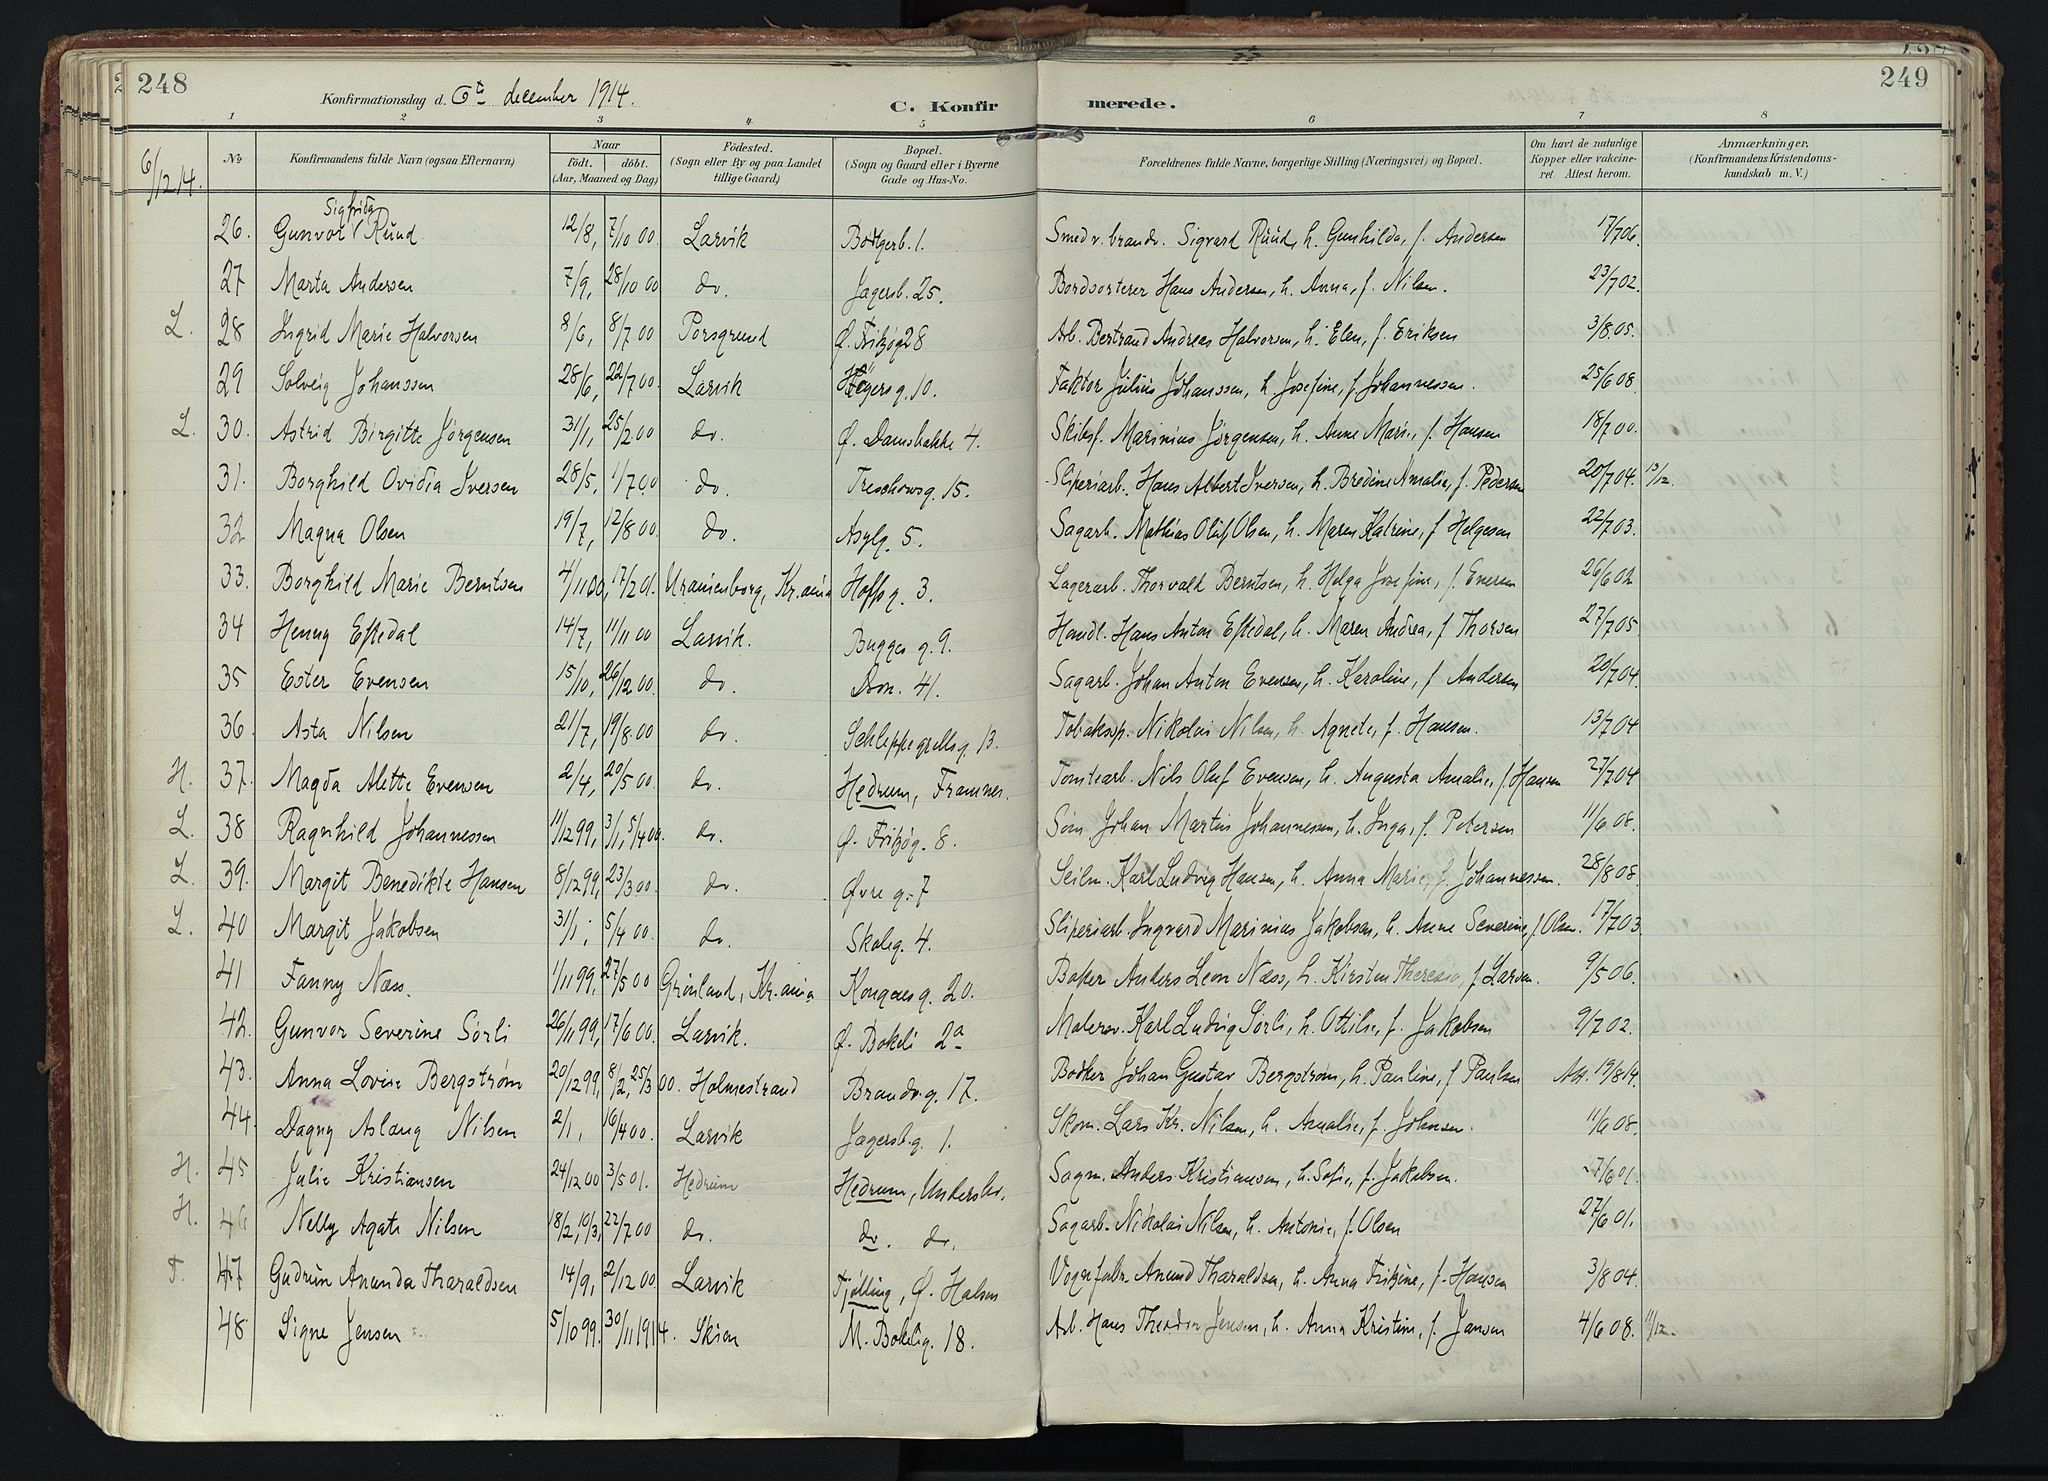 248
Konfirmationsdag d. 6te december 1914.
C. Konfirmerede.
249
1 2 3 4 5 6 7 8
6/12 14.
No
Konfirmandens fulde Navn (ogsaa Efternavn)
Naar
födt. döbt.
(Aar, Maaned og Dag)
Födested.
(Sogn eller By og paa Landet
tillige Gaard)
Bopæl.
(Sogn og Gaard eller i Byerne
Gade og Hus-No.
Forældrenes fulde Navne, borgerlige Stilling (Næringsvei) og Bopæl.
Om havt de naturlige
Kopper eller vakcine-
ret. Attest herom.
Anmærkninger.
(Konfirmandens Kristendoms-
kundskab m. V.)
Sigfrida
26. Gunvor V Ruud 12/8, 7/10 00 Larvik 1. Smed v. brandv. Sigvard Ruud, h. Gunhilda, f. Andersen 17/7 06.
27 Marta Andersen 7/9, 28/10 00 do. Jagersb. 25. Bordsorterer Hans Andersen, h. Anna, f. Nilsen. 23/7 02.
L. 28 Ingrid Marie Halvorsen 8/6, 8/7 00 Porsgrund Ø. Fritzøg 28 Arb. Bertrand Andreas Halvorsen, h. Elen, f. Eriksen 3/8 05.
29 Solveig Johanssen 28/6, 22/7 00. Larvik Hegersg. 10. Faktor Julius Johanssen, h. Josefine, f. Johannessen. 25/6 08
L. 30. Astrid Birgitte Jörgensen 31/1, 25/2 00 do. Ø. Damsbakke 4. Skibsf. Marinius Jörgensen, h. Anne Marie, f. Hansen 18/7 00.
31. Borghild Ovidia Iversen 28/5, 1/7 00 do. Treschowsg. 15. Sliperiarb. Hans Albert Iversen, h. Bredine Amalie, f. Pedersen 20/7 04. 13/12.
32 Magna Olsen 19/7, 12/8 00. do. Asylg. 5. Sagarb. Mathias Oluf Olsen, h. Maren Katrine, f. Helgesen 22/7 03.
33. Borghild Marie Berntsen 4/11 00, 17/2 01. Uranienborg, Kr.ania Hoffsg. 3. Lagerarb. Thorvald Berntsen, h. Helga Josefine, f. Evensen 26/6 02
34 Henny Eftedal 14/7, 11/11 00 Larvik. Bugges g. 9. Handl. Hans Anton Eftedal, h. Maren Andrea, f. Thorsen 27/7 05
35 Ester Evensen 15/10, 26/12 00. do. 41. Sagarb. Johan Anton Evensen, h. Karoline, f. Andersen 20/7 04.
36. Asta Nilsen 21/7, 19/8 00 do. Schleppegrellsg. 13. Tobaksp. Nikolai Nilsen, h. Agnete, f. Hansen. 13/7 04
H. 37. Magda Alette Evensen 2/4, 20/5 00 do. Hedrum, Framnes. Tomtearb. Nils Oluf Evensen, h. Augusta Amalie, f. Hansen 27/7 04
L. 38 Ragnhild Johannessen 11/12 99, 3/1, 5/4 00. do. Ø. Fritzøg. 8. Søm. Johan Martin Johannessen, h. Inga, f. Petersen 11/6 08.
L. 39. Margit Benedikte Hansen 8/12 99, 23/3 00. do. Øvre g. 7 Seilm. Karl Ludvig Hansen, h. Anna Marie, f. Johannessen. 28/8 08.
L. 40 Margit Jakobsen 31/1, 5/4 00. do. Skoleg. 4. Sliperiarb. Ingvard Marinius Jakobsen, h. Anne Severine, f. Olsen. 17/7 03.
41 Fanny Næss. 1/11 99, 27/5 00 Grönland, Kr.ania Kongensg. 20. Baker Anders Leon Næss, h. Kirsten Theresia, f. Larsen. 9/5 06.
42. Gunvor Severine Sörli 26/11 99, 17/6 00. Larvik. Ø. Bokeli 2a Malersv. Karl Ludvig Sörli, h. Ottilie, f. Jakobsen 9/7 02.
43. Anna Lovise Bergström 20/12 99, 8/2, 25/3 00. Holmestrand Brandv.g. 17. Bødker Johan Gustav Bergström, h. Pauline, f. Paulsen Att. 19/8 14.
44. Dagny Aslaug Nilsen 2/1, 16/4 00. Larvik Jagersb.g. 1. Skom. Lars Kr. Nilsen, h. Amalie, f. Johnsen. 11/6 08.
H. 45 Julie Kristiansen 24/12 00 3/5 01. Hedrum Hedrum, Undersbo. Sagm. Anders Kristiansen, h. Sofie, f. Jakobsen. 27/6 01.
H. 46 Nelly Agate Nilsen 18/2, 10/3, 22/7 00 do. do. do. Sagarb. Nikolai Nilsen, h. Antonie, f. Olsen 27/6 01.
T. 47 Gudrun Ananda Tharaldsen 14/9, 2/12 00. Larvik Tjølling, Ø. Halsen Vognfabr. Anund Tharaldsen, h. Anna Fritzine, f. Hansen 3/8 04.
48. Signe Jensen 5/10 99. 30/11 1914. Skien M. Bokelig. 18. Arb. Hans Theodor Jensen, h. Anna Kristine, f. Jansen 4/6 08. 11/12.